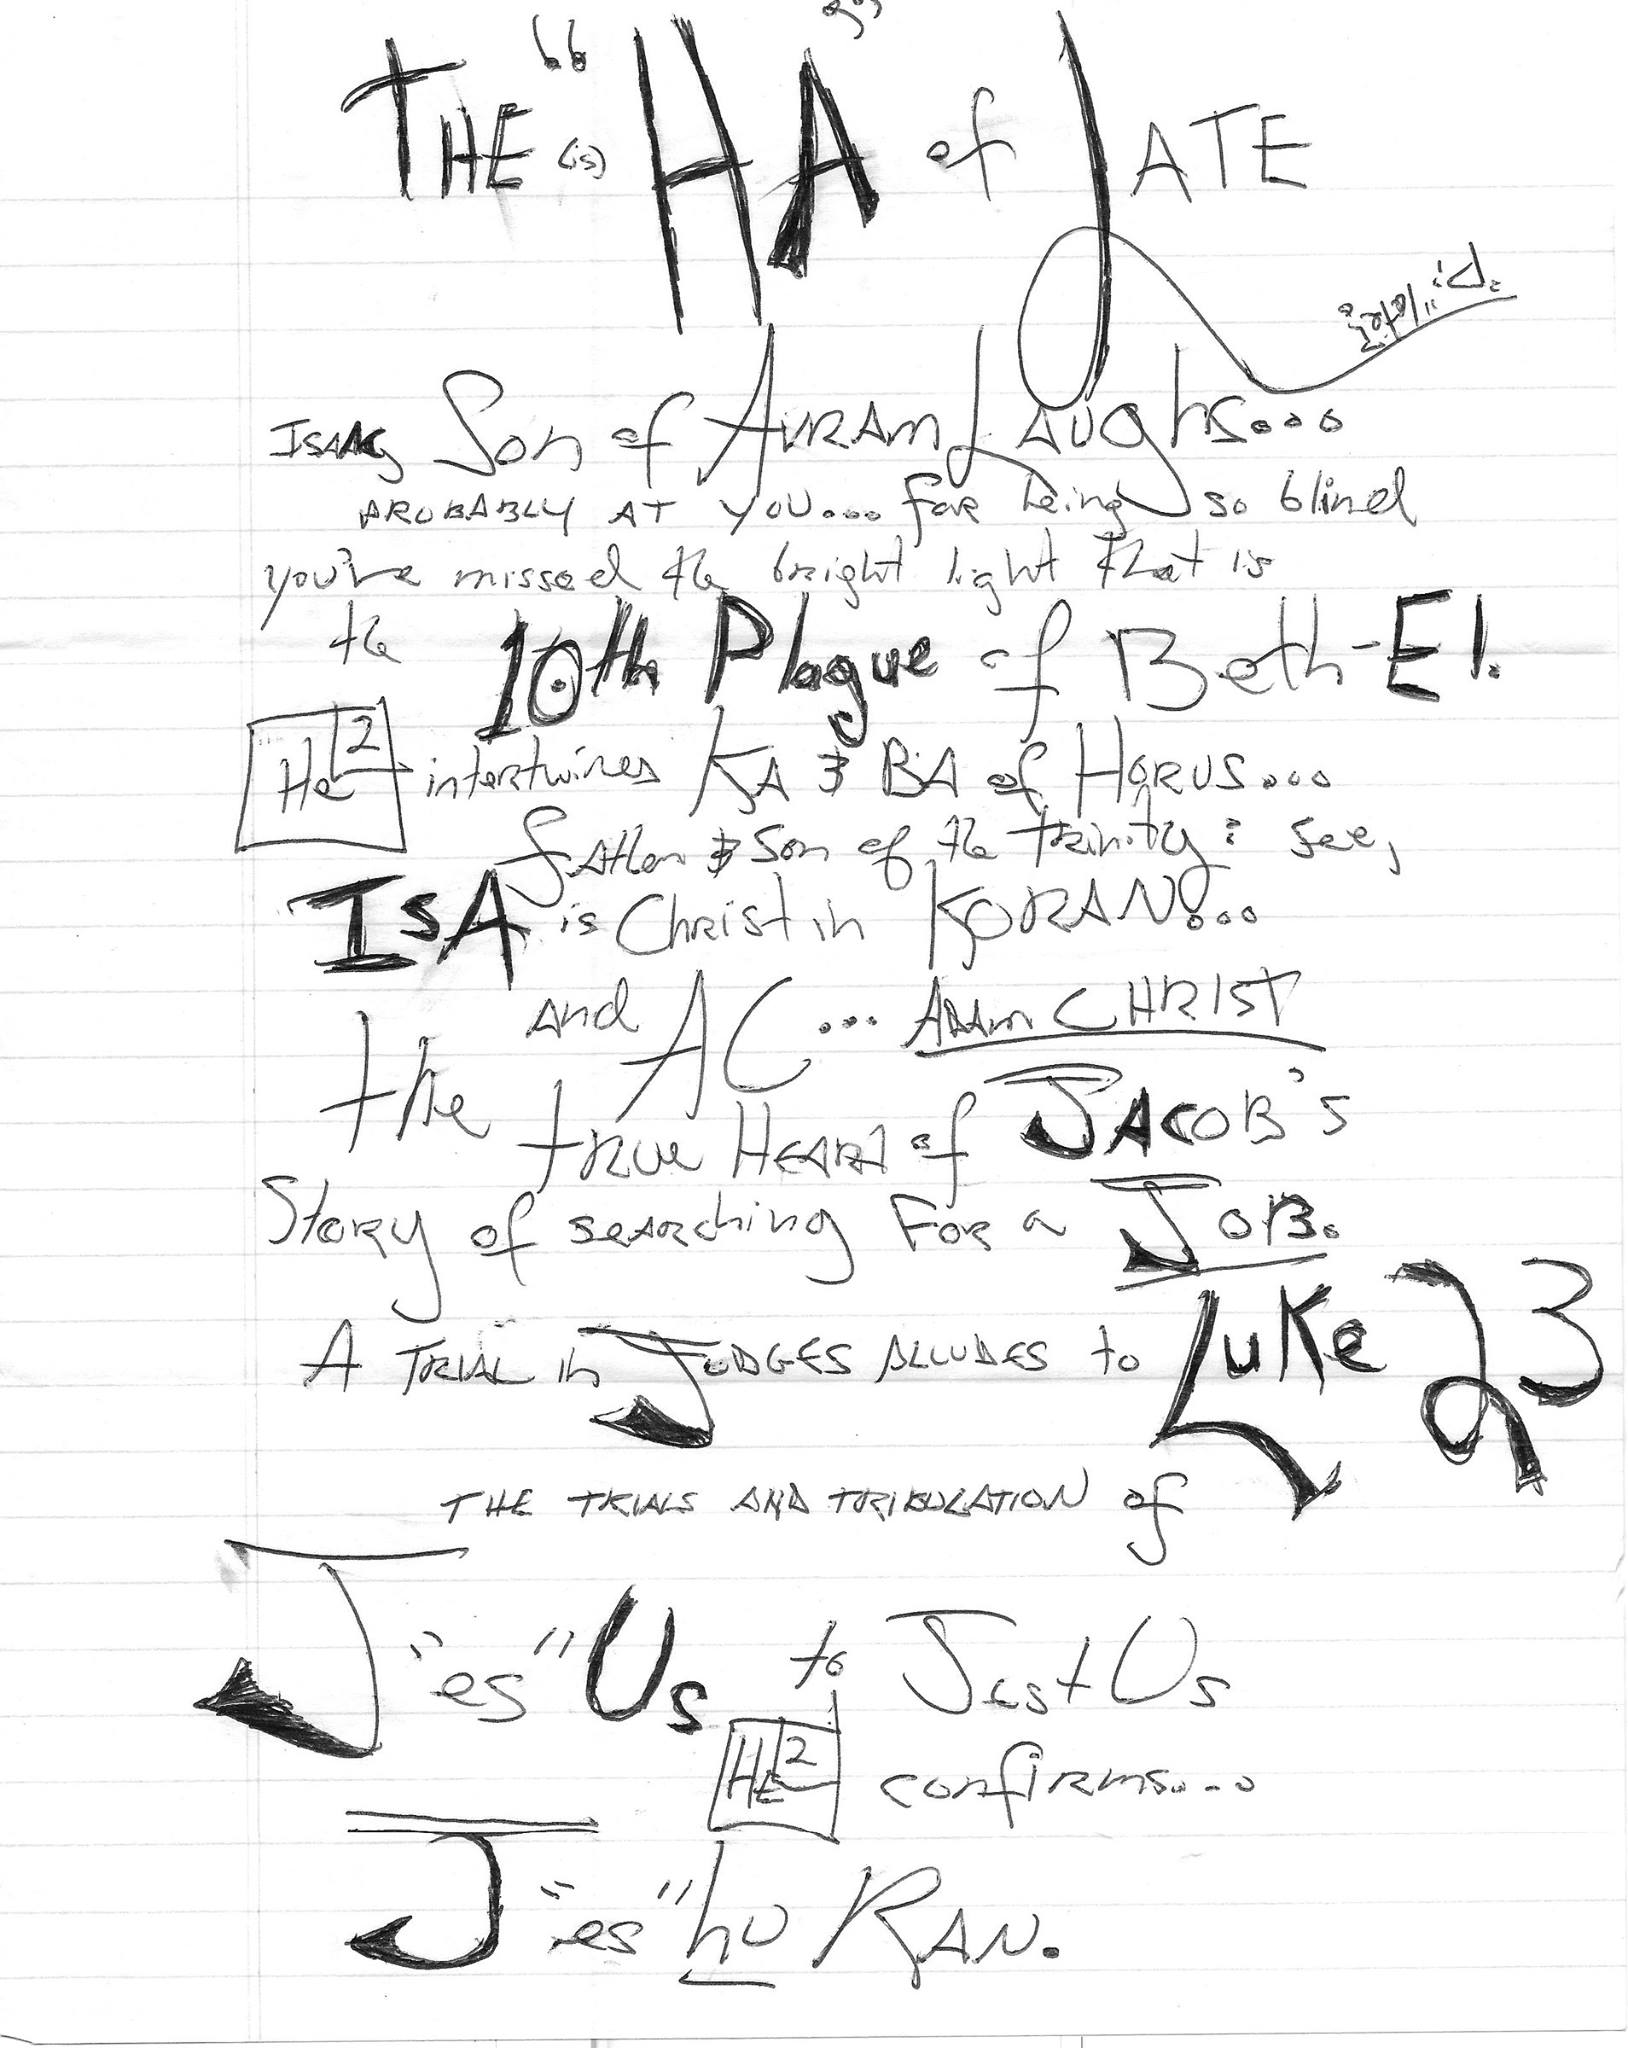 THE (is) “HA” of JATE
ISAAC, Son of AVRAM LAughs...
PROBABLY AT YOU... for being so blind
you've missed the bright light that is
the 10th Plague of Beth-El.
He 2 intertwines KA & BA of HORUS...
father & Son of the trinity: see,
ISA is Christ in KORAN...
and AC... ADAM CHRIST
the true HEART of JACOB's
Story of searching For a JOB.
A TRIAL in JUDGES ALLUDES to LuKe 23
THE TRIALS AND TRIBULATION of
J "es" Us to Jest Us
HE 2 confirms...
J "es" hu RAN.